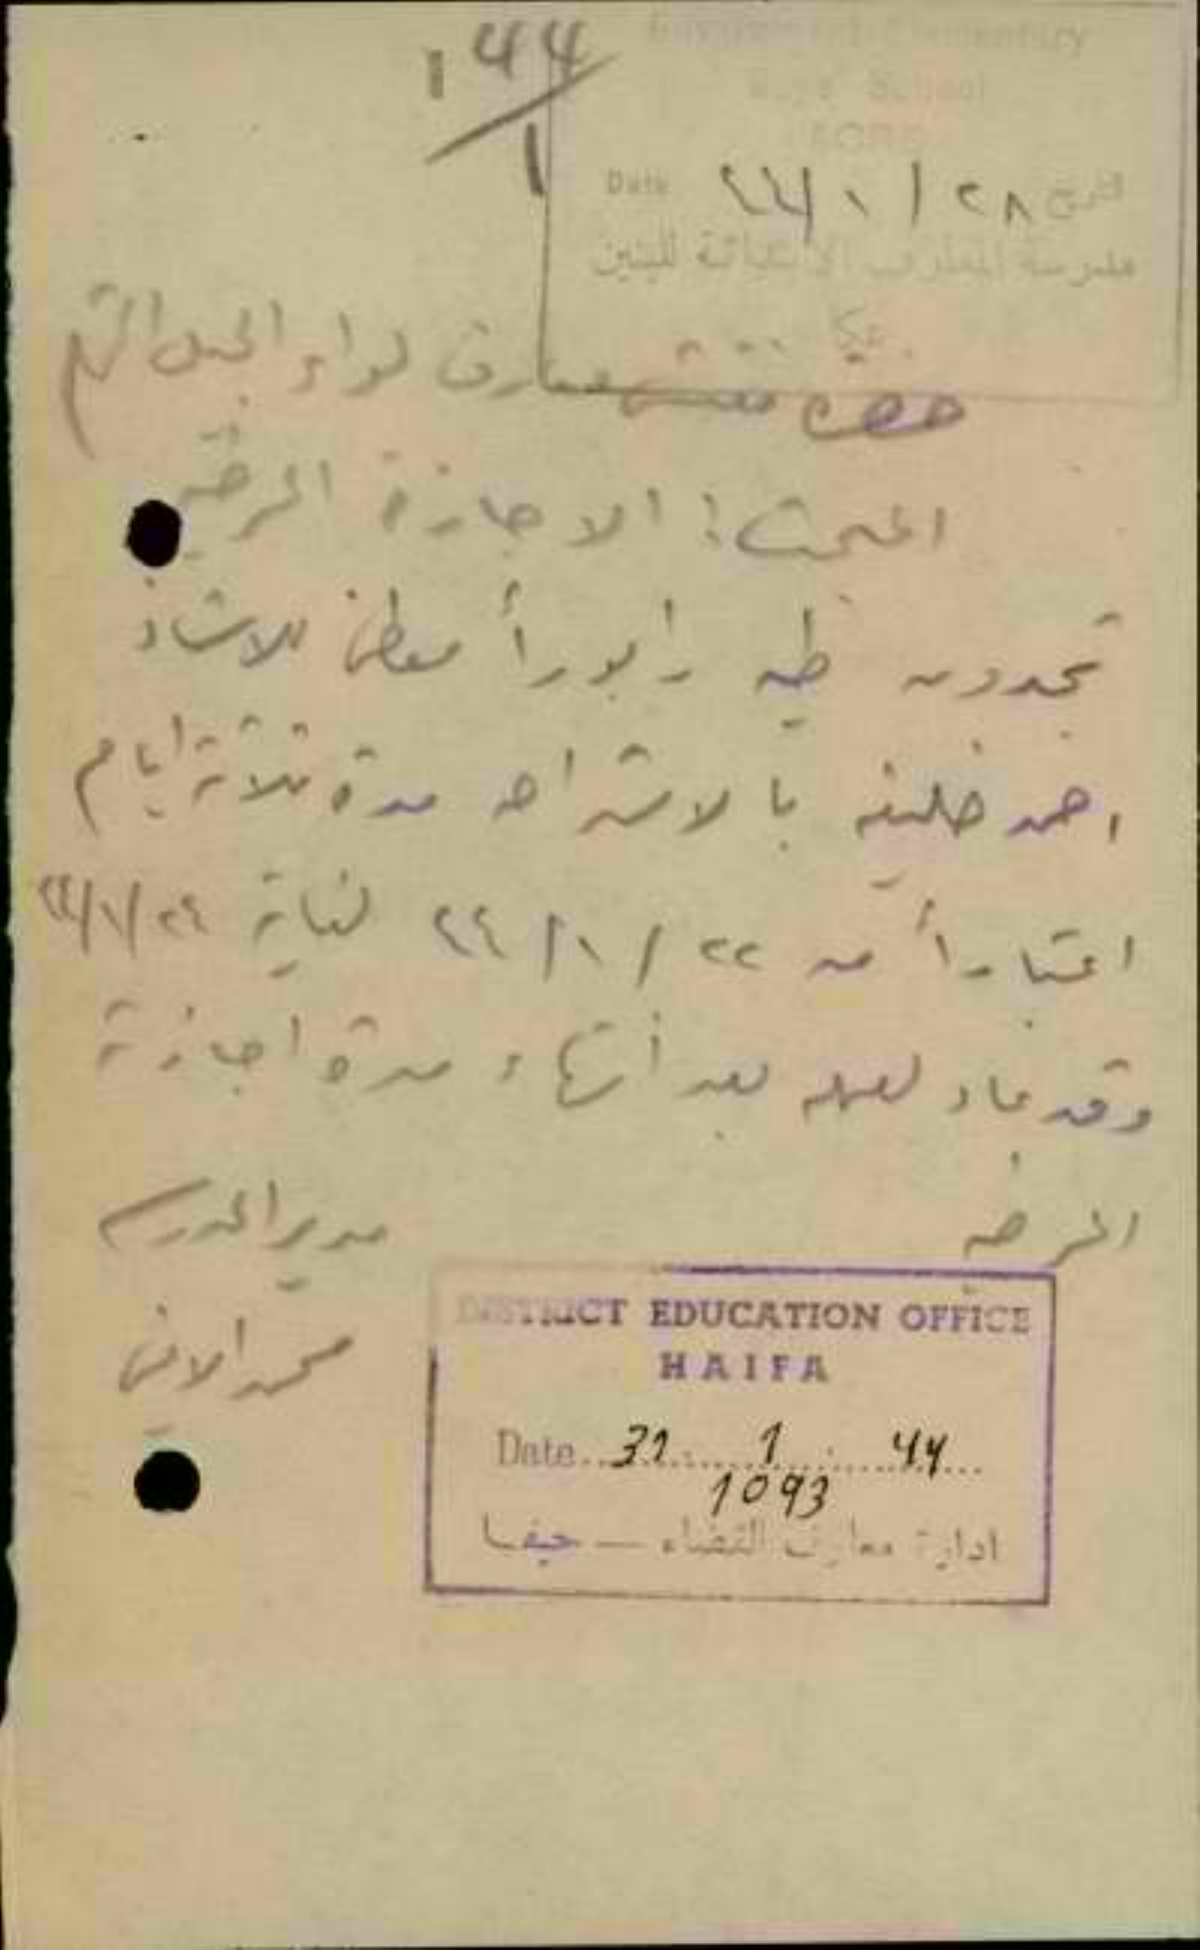 144
1
Government Elementary
Boys' School
ACRE
Date ٢٨ / ١ / ٤٤ التاريخ
مدرسة المعارف الابتدائية للبنين
عكا
حضرة مفتش معارف لواء الجليل
المبحث: الاجازة المرضية
تجدون طيه رابوراً معطى للاستاذ
احمد خليفه بالاستراحه مدة ثلاثة ايام
اعتباراً من ٢٢ / ١ / ٤٤ لغاية ٢٤ / ١ / ٤٤
وقد عاد لعمله بعد أنتهاء مدة اجازته
المرضيه
مدير المدرسه
DISTRICT EDUCATION OFFICE
HAIFA
Date 31 1 44
1093
ادارة معارف القضاء — حيفا